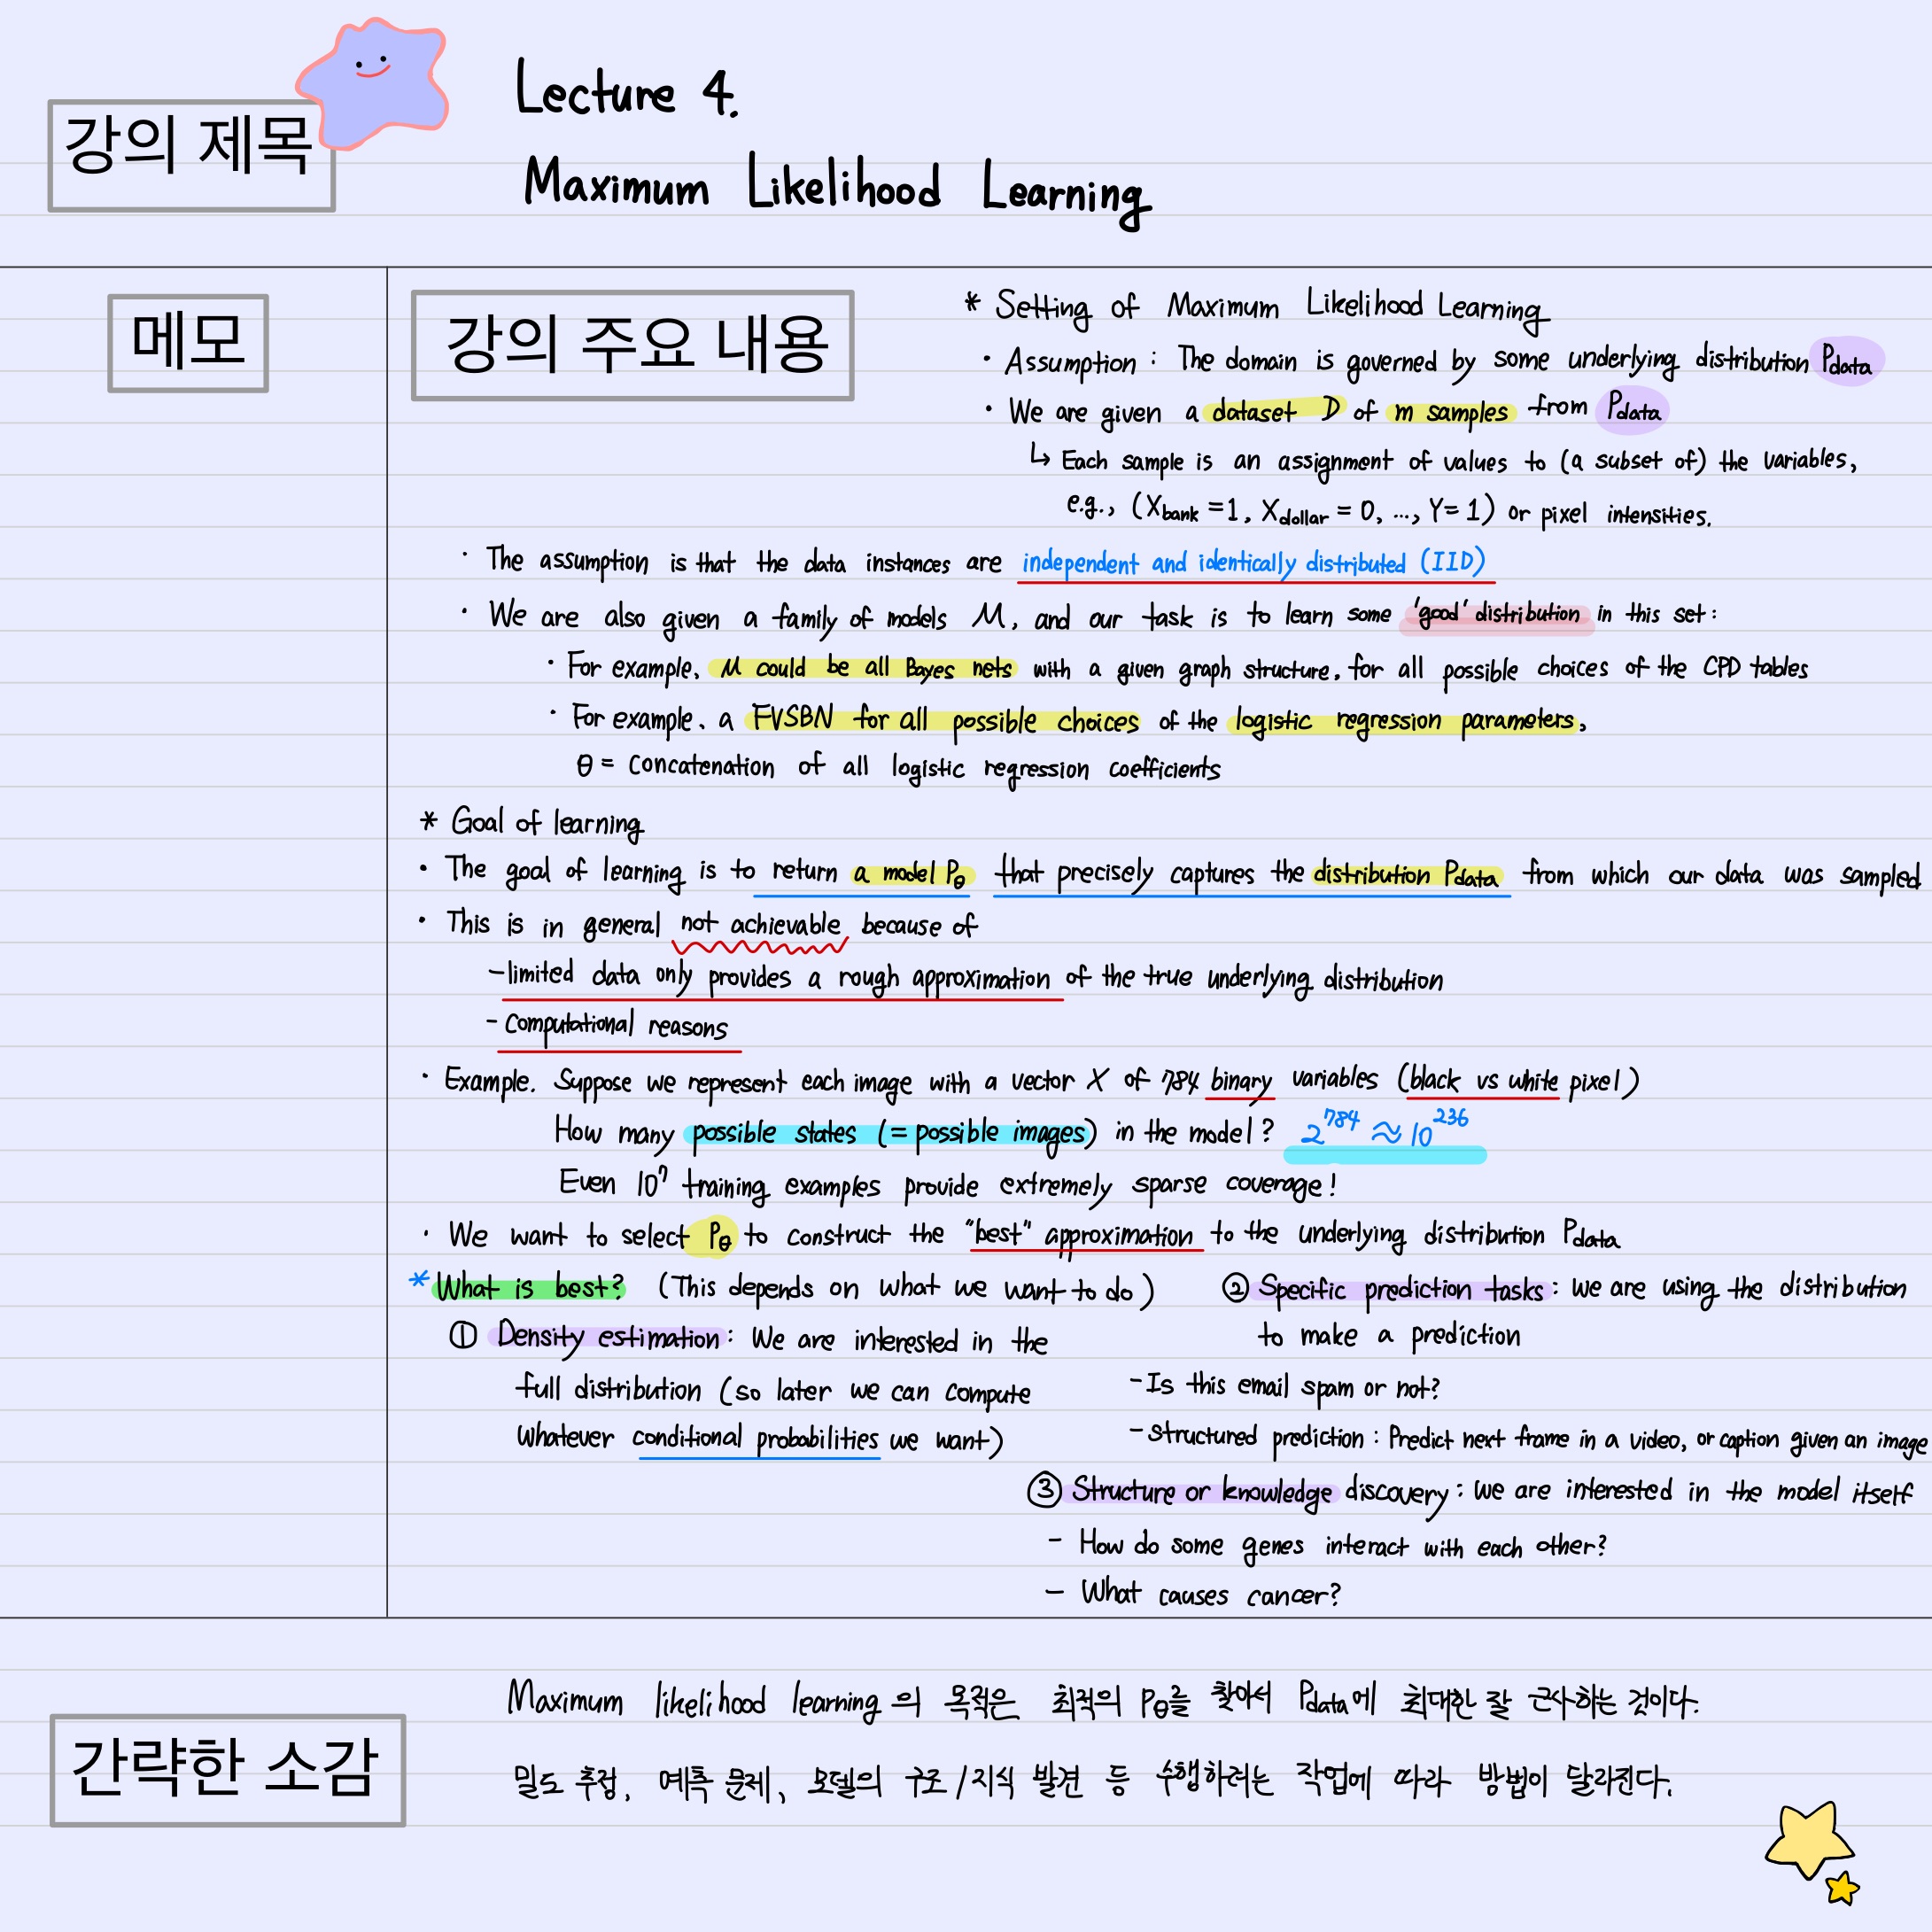 강의 제목
Lecture 4.
Maximum Likelihood Learning
메모
강의 주요 내용
* Setting of Maximum Likelihood Learning
· Assumption : The domain is governed by some underlying distribution Pdata
· We are given a dataset D of m samples from Pdata
↳ Each sample is an assignment of values to (a subset of) the variables,
e.g., (Xbank = 1, Xdollar = 0, ..., Y= 1) or pixel intensities.
· The assumption is that the data instances are independent and identically distributed (IID)
· We are also given a family of models M, and our task is to learn some 'good' distribution in this set :
· For example, M could be all Bayes nets with a given graph structure, for all possible choices of the CPD tables
· For example, a FVSBN for all possible choices of the logistic regression parameters,
θ = concatenation of all logistic regression coefficients
* Goal of learning
· The goal of learning is to return a model Pθ that precisely captures the distribution Pdata from which our data was sampled
· This is in general not achievable because of
- limited data only provides a rough approximation of the true underlying distribution
- Computational reasons
· Example. Suppose we represent each image with a vector X of 784 binary variables (black vs white pixel)
How many possible states (= possible images) in the model? 2^784 ≈ 10^236
Even 10^7 training examples provide extremely sparse coverage!
· We want to select Pθ to construct the "best" approximation to the underlying distribution Pdata
* What is best? (This depends on what we want to do)
① Density estimation : We are interested in the
full distribution (so later we can compute
whatever conditional probabilities we want)
② Specific prediction tasks : we are using the distribution
to make a prediction
- Is this email spam or not?
- Structured prediction : Predict next frame in a video, or caption given an image
③ Structure or knowledge discovery : we are interested in the model itself
- How do some genes interact with each other?
- What causes cancer?
간략한 소감
Maximum likelihood learning의 목적은 최적의 Pθ를 찾아서 Pdata에 최대한 잘 근사하는 것이다.
밀도 추정, 예측 문제, 모델의 구조/지식 발견 등 수행하려는 작업에 따라 방법이 달라진다.